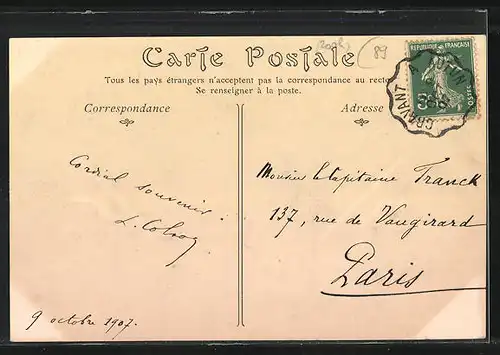 Carte Postale
89
Tous les pays étrangers n'acceptent pas la correspondance au recto
Se renseigner à la poste.
Correspondance
Adresse
RÉPUBLIQUE FRANÇAISE
POSTES
CRAVANT A
Cordial souvenir.
Monsieur le Capitaine Franck
137, rue de Vaugirard
Paris
9 octobre 1907.